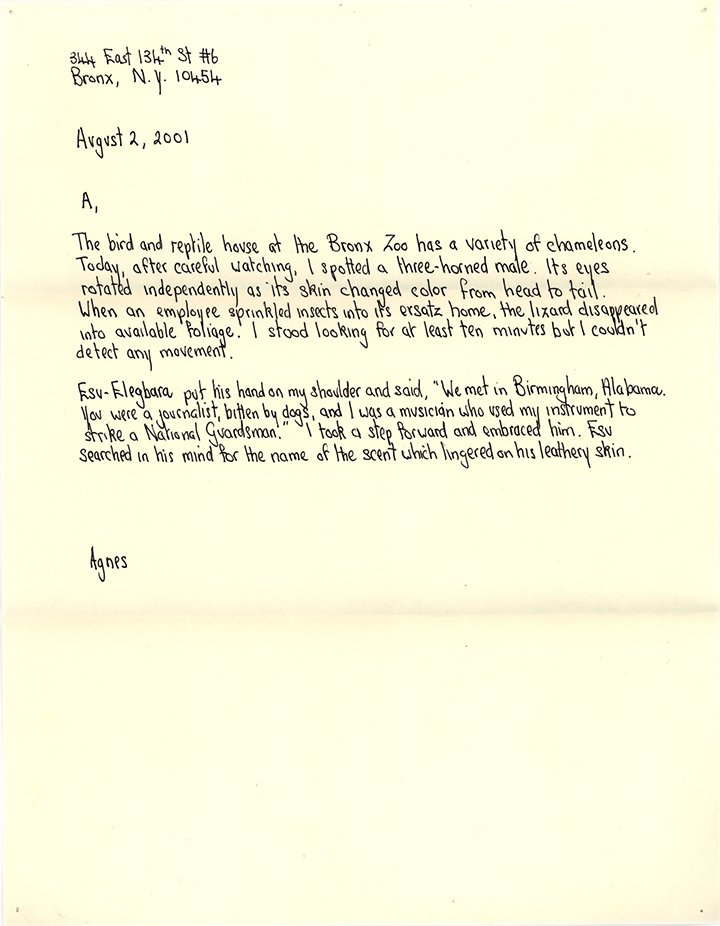 344 East 134th St #6
Bronx, N.Y. 10454
August 2, 2001
A,
The bird and reptile house at the Bronx Zoo has a variety of chameleons.
Today, after careful watching, I spotted a three-horned male. Its eyes
rotated independently as its skin changed color from head to tail.
When an employee sprinkled insects into its ersatz home, the lizard disappeared
into available foliage. I stood looking for at least ten minutes but I couldn't
detect any movement.
Esu-Elegbara put his hand on my shoulder and said, "We met in Birmingham, Alabama.
You were a journalist, bitten by dogs, and I was a musician who used my instrument to
strike a National Guardsman." I took a step forward and embraced him. Esu
searched in his mind for the name of the scent which lingered on his leathery skin.
Agnes